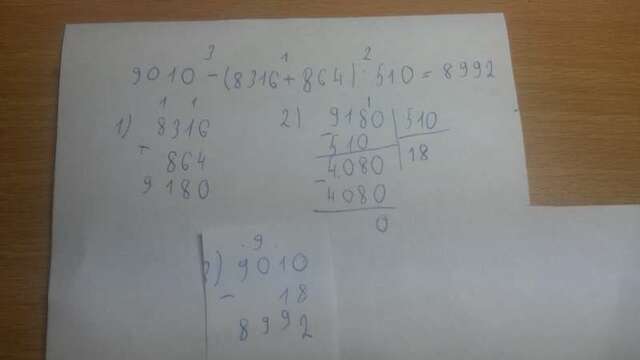 3 1 2
9010 - (8316 + 864) : 510 = 8992
1 1
1) 8316
+
864
9180
2) 9180 | 510
- 510 | 18
4080
- 4080
0
. 9 .
3) 9010
- 18
8992